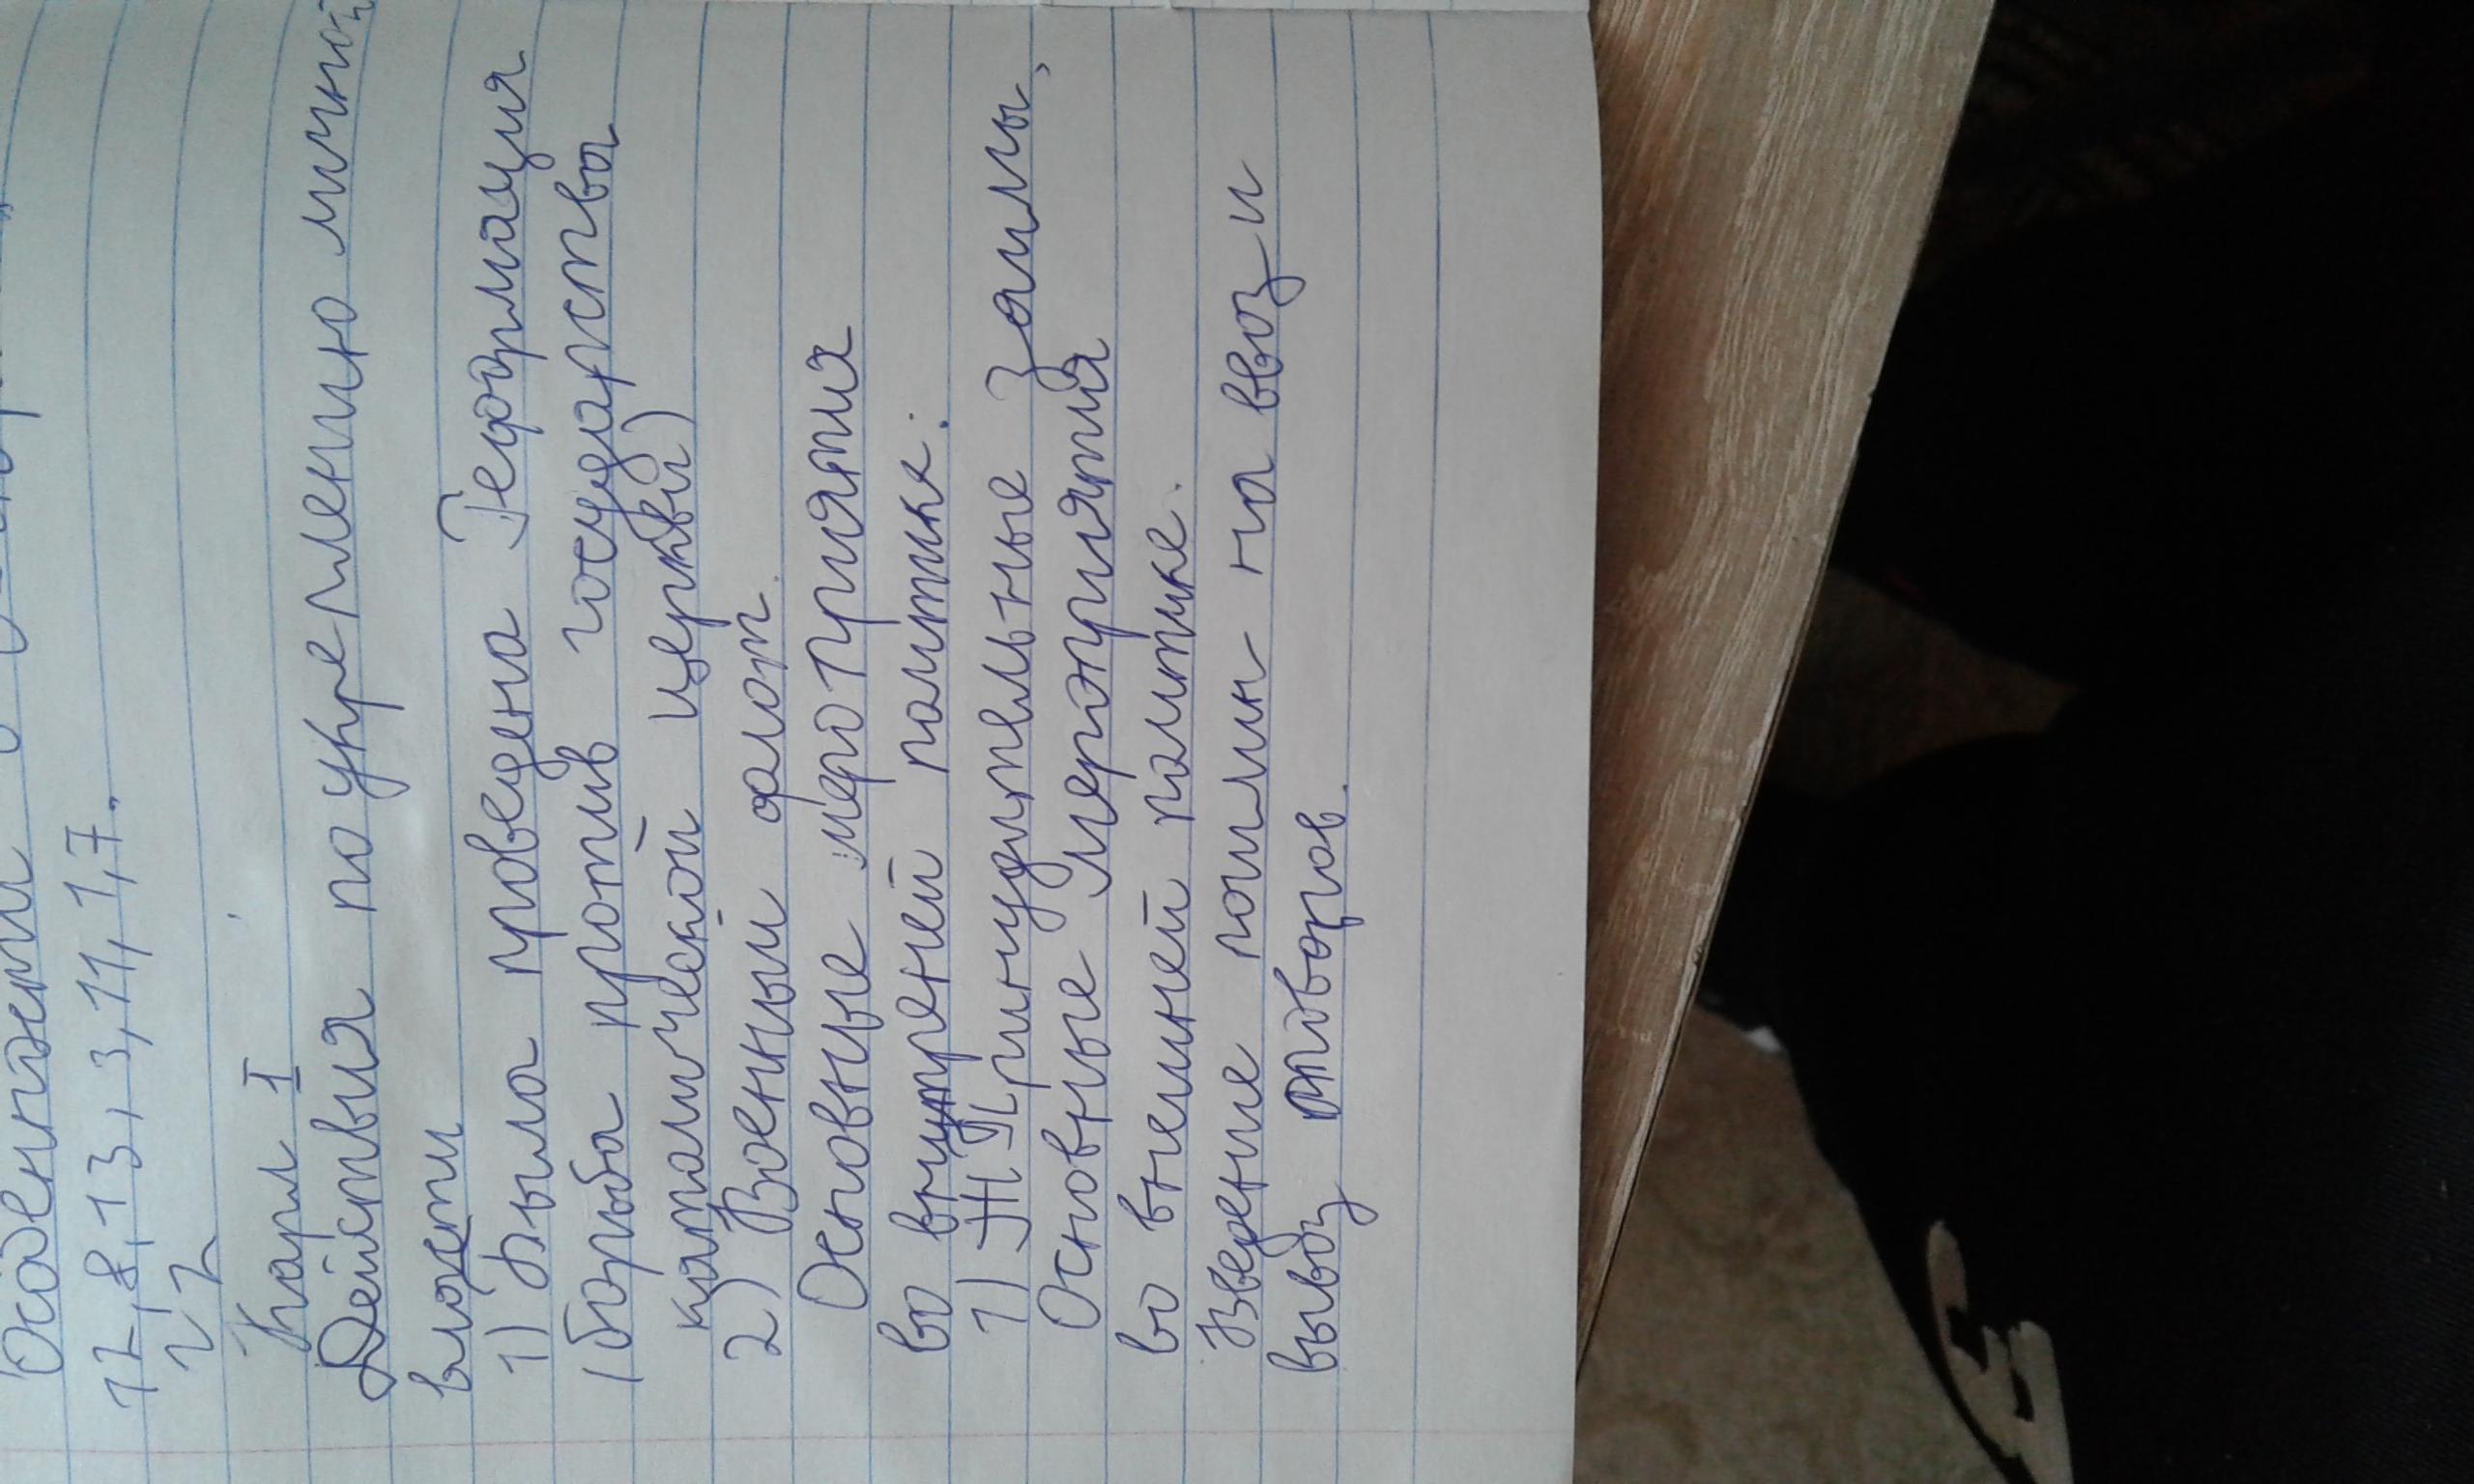 12, 8, 13, 3, 11, 1, 7.
2 2
Карл I
Действия по укреплению личной
власти
1) Была проведена Реформация
(борьба против государства
католической церкви)
2) Военный флот.
Основные мероприятия
во внутреней политике:
1) Принудительные займы,
Основные мероприятия
во внешней политике.
Введение пошлин на ввоз и
вывоз товаров.